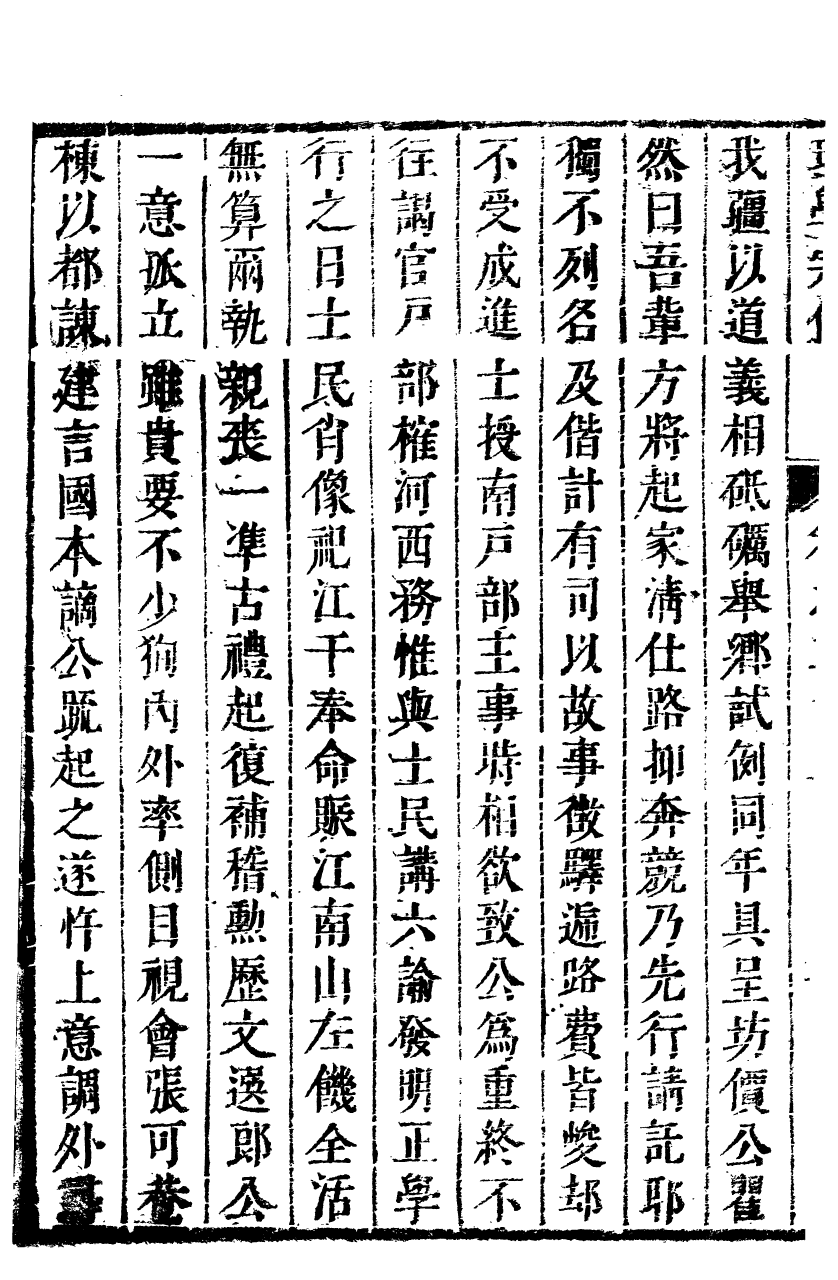 我疆以道義相砥礪舉鄉試例同年具呈坊價公瞿
然曰吾輩方將起家淸仕路抑奔競乃先行請託耶
獨不列名及偕計有司以故事徵驛遞路費皆峻却
不受成進士授南戸部主事時相欲致公爲重終不
往謁官戸部榷河西務惟與士民講六諭發明正學
行之日士民肖像祀江干奉命賑江南山左饑全活
無算兩執親喪一準古禮起復補稽勳歷文選郎公
一意孤立雖貴要不少狥內外率側目視會張可菴
棟以都諫建言國本謫公疏起之遂忤上意調外尋